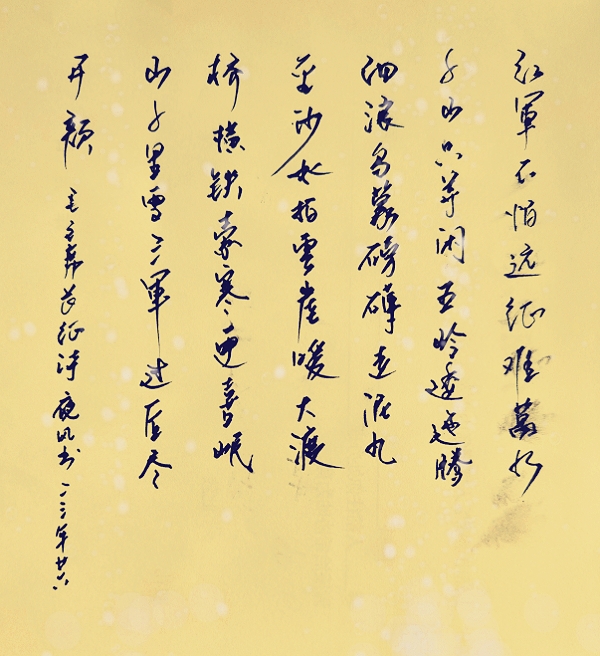 红軍不怕远征难萬水
千山只等闲五岭逶迤腾
细浪乌蒙磅礴走泥丸
金沙水拍雲崖暖大渡
桥横铁索寒更喜岷
山千里雪三軍过后尽
开颜 毛主席长征诗 书